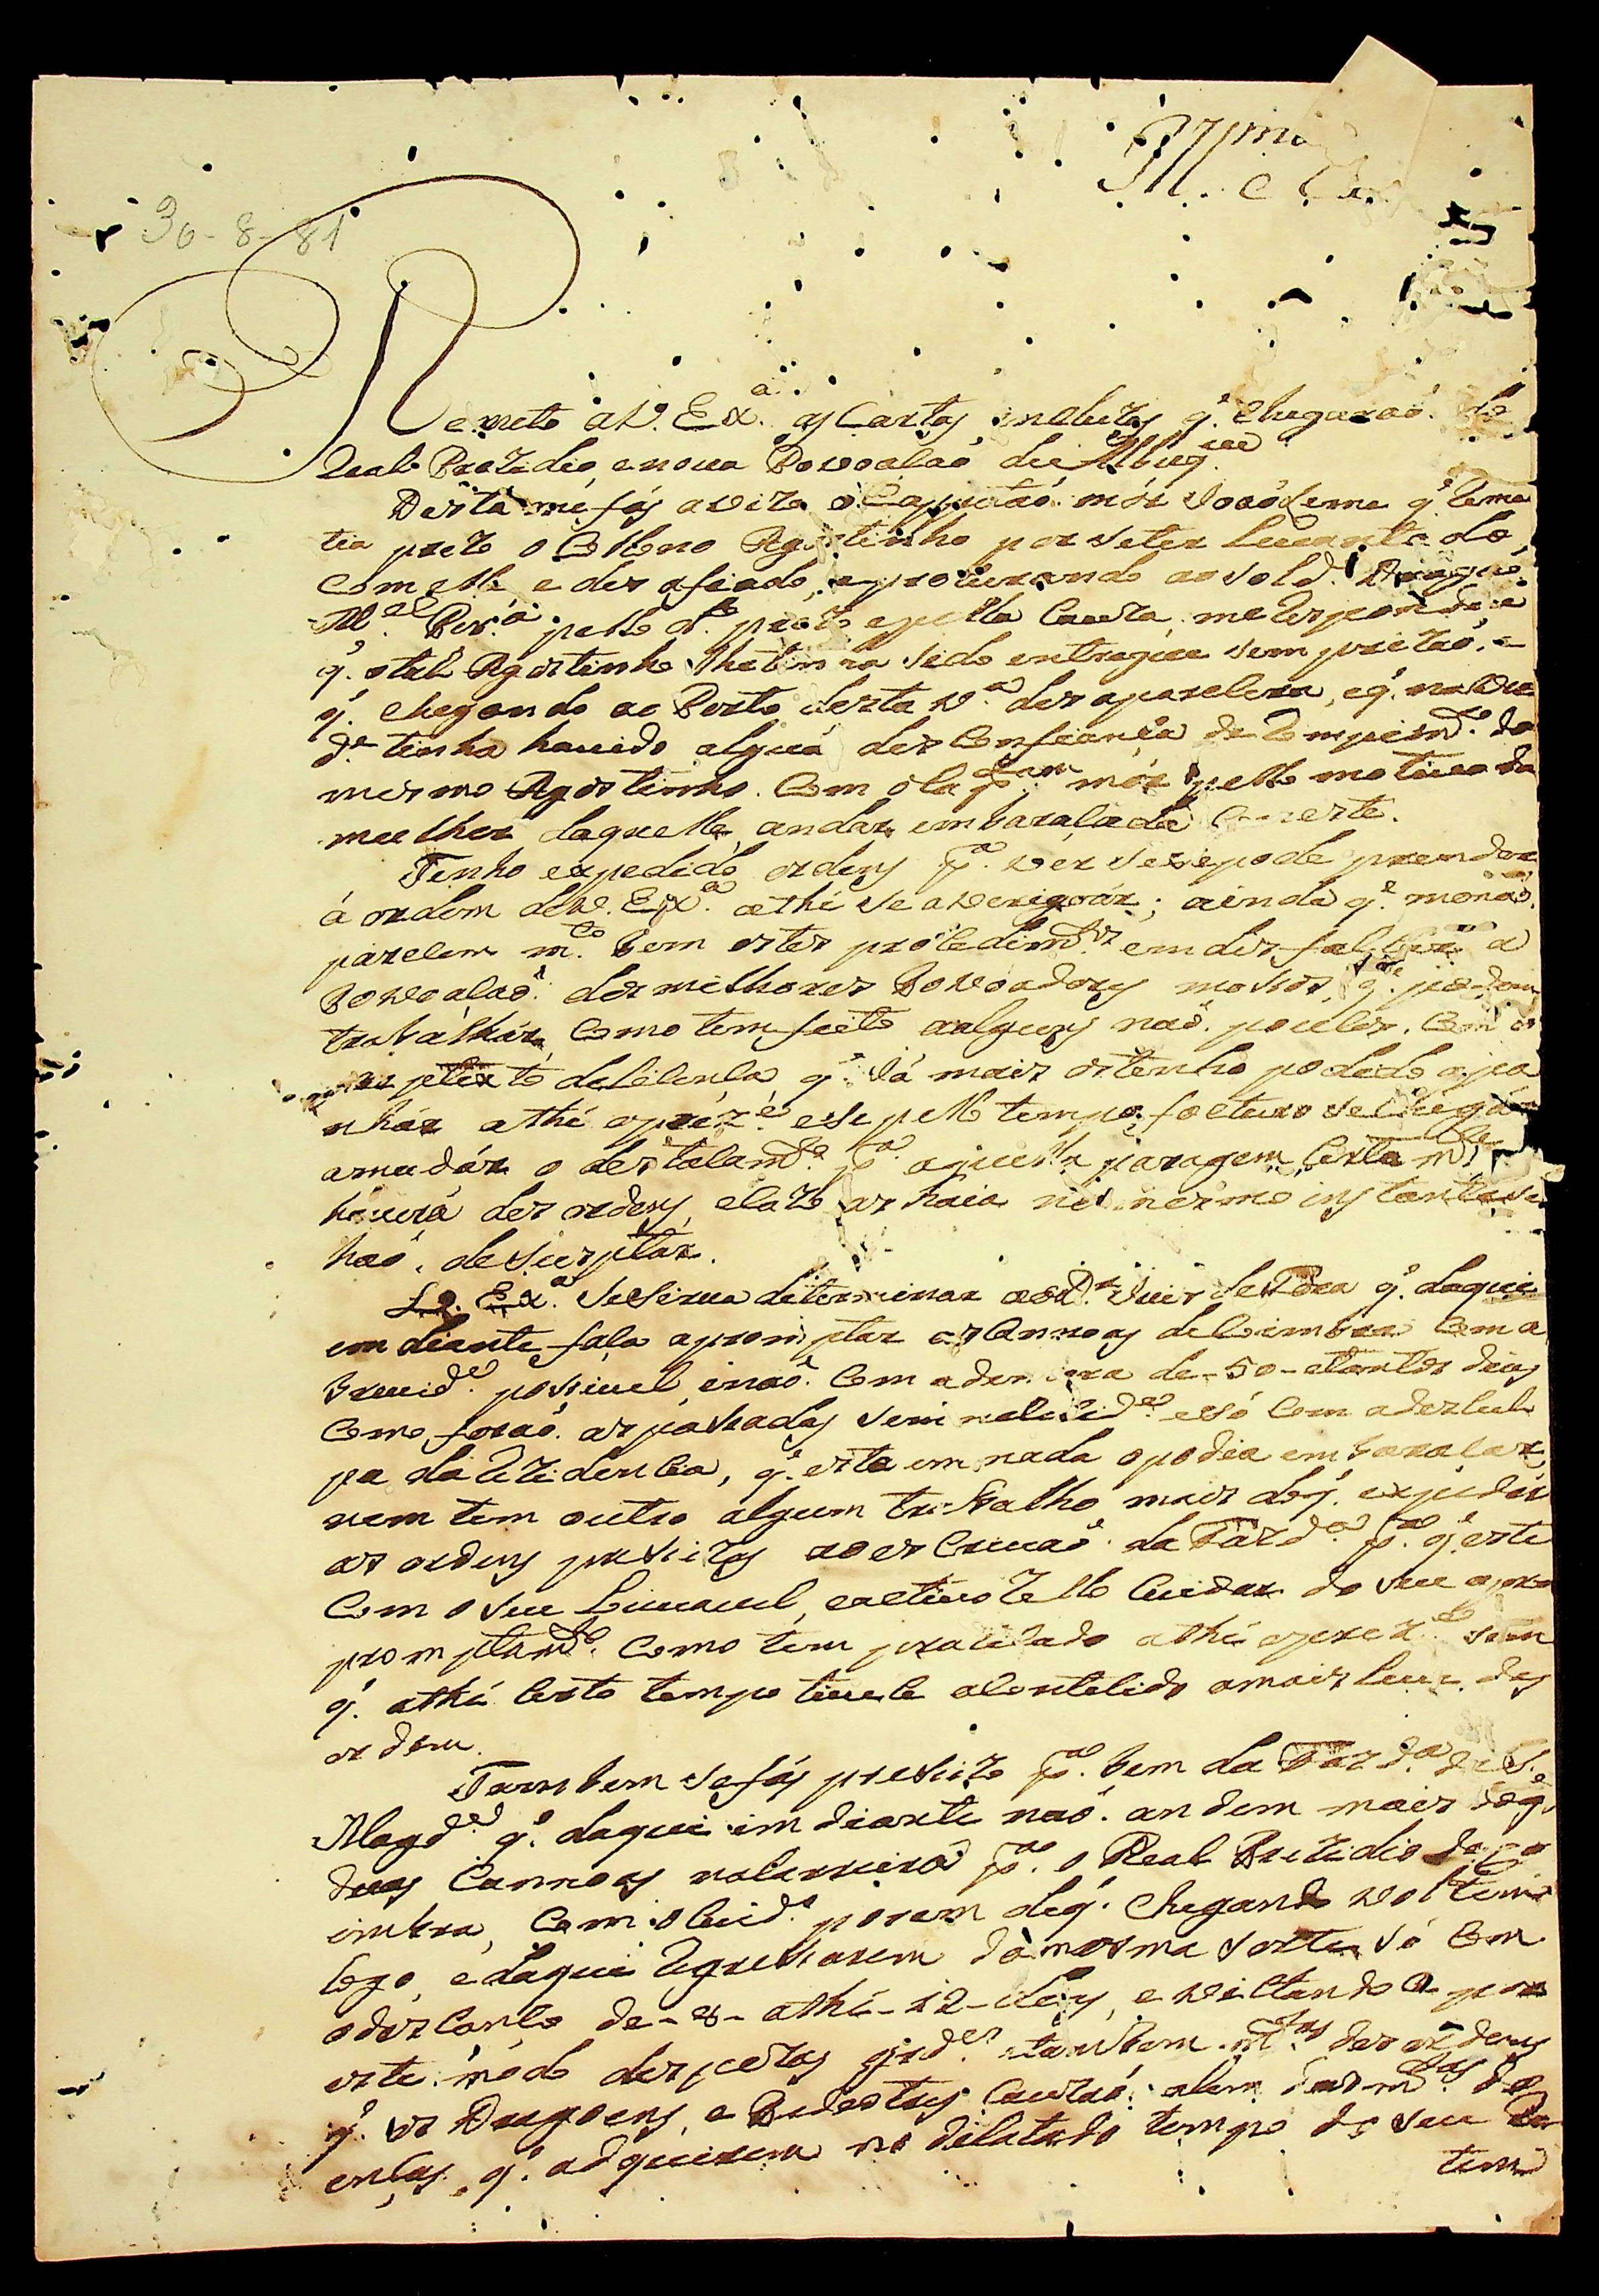 Illmo
e Ex
30-8-81
Remeto a V. Exª. as Cartas incluzas q̃. chegaraõ. do
Real Prezidio, e nova Povoaçaõ de Albuqᵘᵉ
Desta me fás avizo o Cappitaõ mór Joaõ Leme q̃. reme
tia prezo o Colono Agostinho por se ter levantado,
com elle, e desafiado, e procurando ao Sold. Dragaõ
Mᵉˡ. Perª pello dº. prezo e pella Carta, me respondeu
q̃. o tal Agostinho lhe tinha sido entregue sem prizaõ, e
q̃. chegando ao Porto desta Vª. desaparecera, e q̃. na verᵈᵉ
dᵉ. tinha havido alguã desconfiança de Compeirº. do
mesmo Agostinho. Com o Capᵃᵐ mór pello motivo da
mulher daquelle, andar embaraçada com este.
Tenho expedido ordens pª. ver se se pode prender
á ordem de V. Exª. athé se averigoár; ainda q̃. me naõ.
parecem mᵗᵒ bem estes procedimᵗᵒˢ em desfalcar a
Povoaçaõ. dos milhores Povoadores mossos, q̃. podem
trabalhár, como tem feito alguns naõ. poucos. Com o
pretexto de licença, q̃. já mais os tenho podido apa
nhár athé oprezᵉ. e se pello tempo futuro se chegár
a mudár o destacamᵗᵒ pª. aquella paragem, certamᵗᵉ
haverá desordens, e cazo as haia no mesmo instante se
haõ. de supitar.
S. Exª. Se Sirva determinar ao Dʳ. Juis de Fora q̃. daqui
em diante faça apromptar as Canoas de Coimbra com a
brevidᵉ. possivel, e naõ. Com a demora de -50- e tantos dias
Como foraõ. as passadas sem necessidᵉ. e só Com a descul
pa da Rezidencia, q̃. esta em nada o podia embaraçar,
nem tem outro algum trabalho mais do q̃. expedir
as ordens precizas ao escrivaõ. da Fazdª. pª. q̃. este
Com o seu louvavel, e activo zello cuidar do seu apro
promptamᵗᵒ. Como tem praticado athé oprezᵗᵉ. sem
q̃. athé certo tempo tivece acontecido a mais leve des
ordem.
Tambem se fás precizo pª. bem da Fazdª. de S.
Magdᵉ. q̃. daqui em diante naõ. andem mais do q̃.
duas Cannoas na Carreira pª. o Real Prezidio de Co
imbra, Com o cuidº. porem de q̃. chegando voltem
logo, e daqui regressarem da mesma sorte só Com
o descanço de -8- athé -12- dias, e evictandoce por
este modo despezas grdᵉˢ. e tambem mᵗᵃˢ desordens
q̃. os Dragoens, e Pedestres Cauzaõ. alem das mᵗᵃˢ do
enças, q̃. adquirem no dilatado tempo do seu De
tem